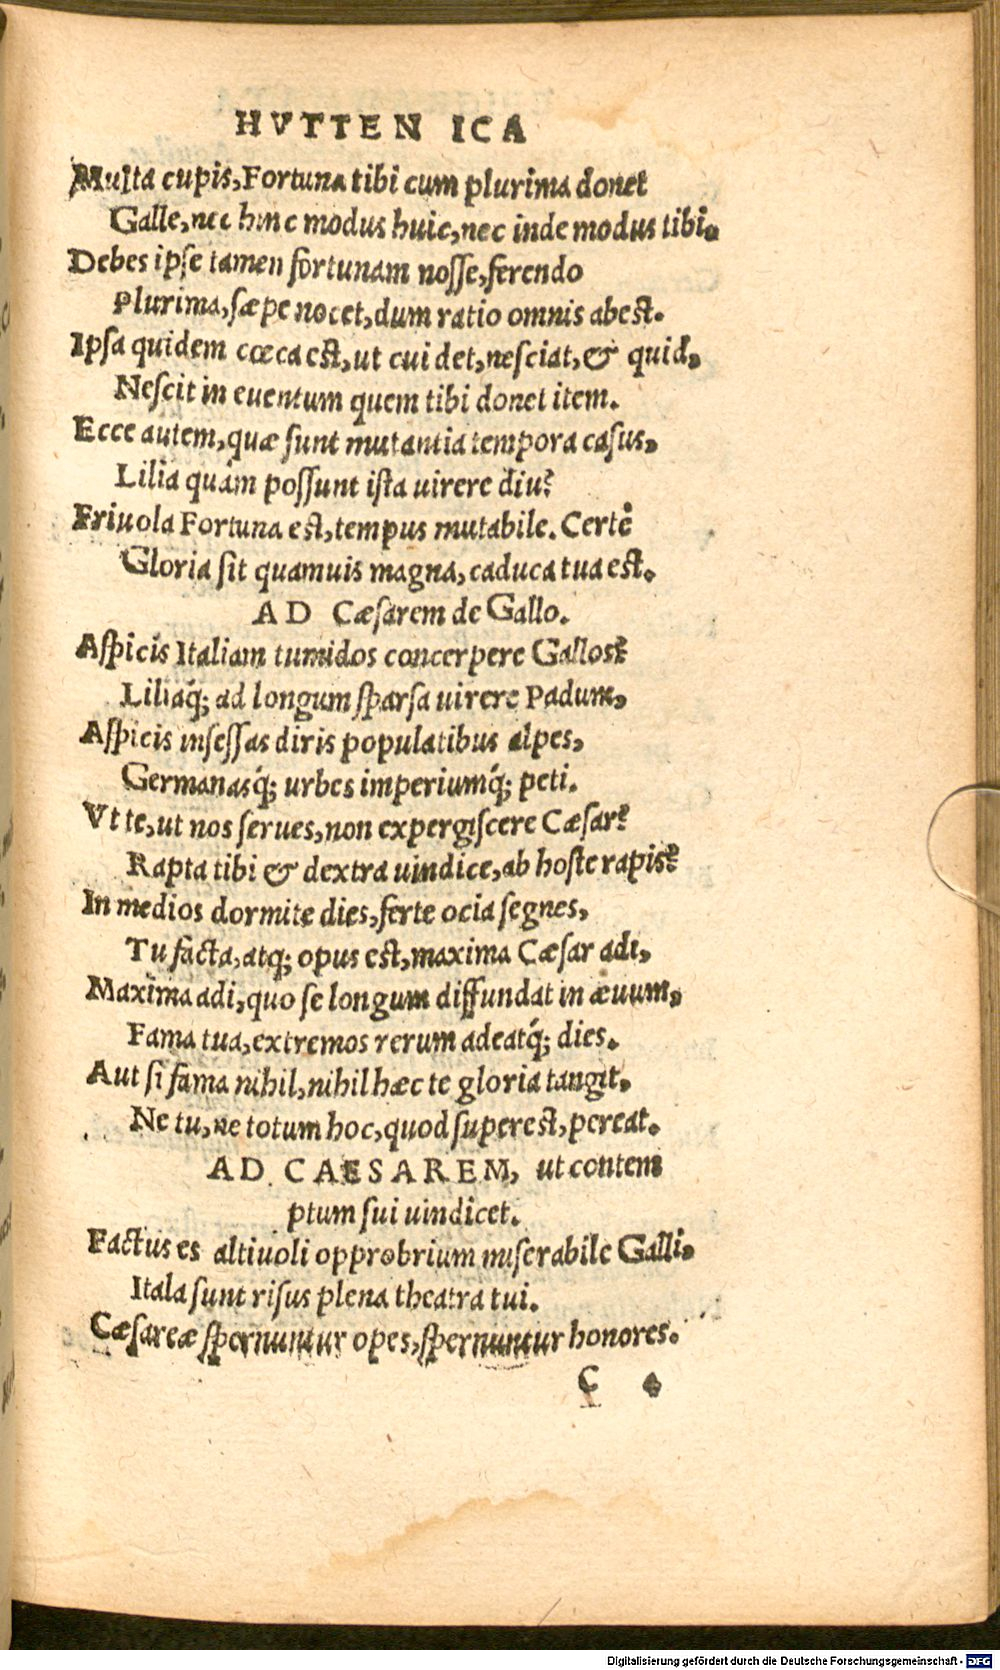 HVTTEN ICA
Multa cupis, Fortuna tibi cum plurima donet
Galle, nec hinc modus huic, nec inde modus tibi.
Debes ipſe tamen fortunam noſſe, ferendo
Plurima, ſæpe nocet, dum ratio omnis abest.
Ipſa quidem cœca est, ut cui det, neſciat, & quid,
Neſcit in euentum quem tibi donet item.
Ecce autem, quæ ſunt mutantia tempora caſus,
Lilia quàm poſſunt iſta uirere diu?
Friuola Fortuna est, tempus mutabile. Certè
Gloria ſit quamuis magna, caduca tua est.
AD Cæſarem de Gallo.
Aſpicis Italiam tumidos concerpere Gallos?
Liliaq́; ad longum ſparſa uirere Padum,
Aſpicis inſeſſas diris populatibus alpes,
Germanasq́; urbes imperiumq́; peti.
Vt te, ut nos ſerues, non expergiſcere Cæſar?
Rapta tibi & dextra uindice, ab hoſte rapis?
In medios dormite dies, ferte ocia ſegnes,
Tu facta, atq; opus est, maxima Cæſar adi,
Maxima adi, quo ſe longum diffundat in æuum,
Fama tua, extremos rerum adeatq́; dies.
Aut ſi fama nihil, nihil hæc te gloria tangit,
Ne tu, ne totum hoc, quod ſuperest, pereat.
AD CAESAREM, ut contem
ptum ſui uindicet.
Factus es altiuoli opprobrium miſerabile Galli,
Itala ſunt riſus plena theatra tui.
Cæſareæ ſpernuntur opes, ſpernuntur honores.
C
Digitalisierung gefördert durch die Deutsche Forschungsgemeinschaft - DFG